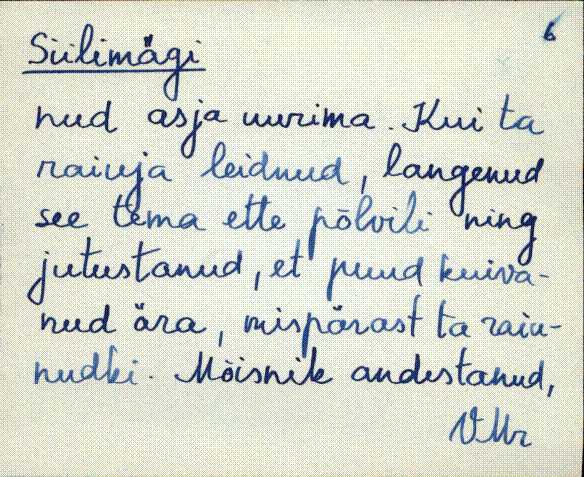 6
Siilimägi
nud asja uurima. Kui ta
raiuja leidnud, langenud
see tema ette põlvili ning
jutustanud, et puud kuiva-
nud ära, mispärast ta raiu-
nudki. Mõisnik andestanud,
VMr